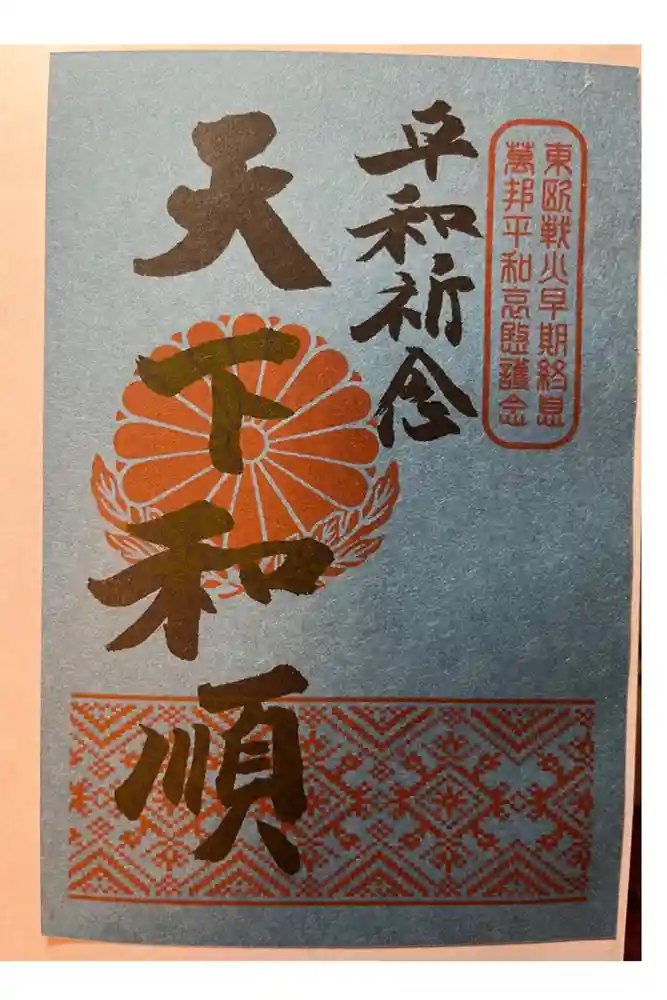 東欧戦火早期終息
萬邦平和哀愍護念
平和祈念
天下和順